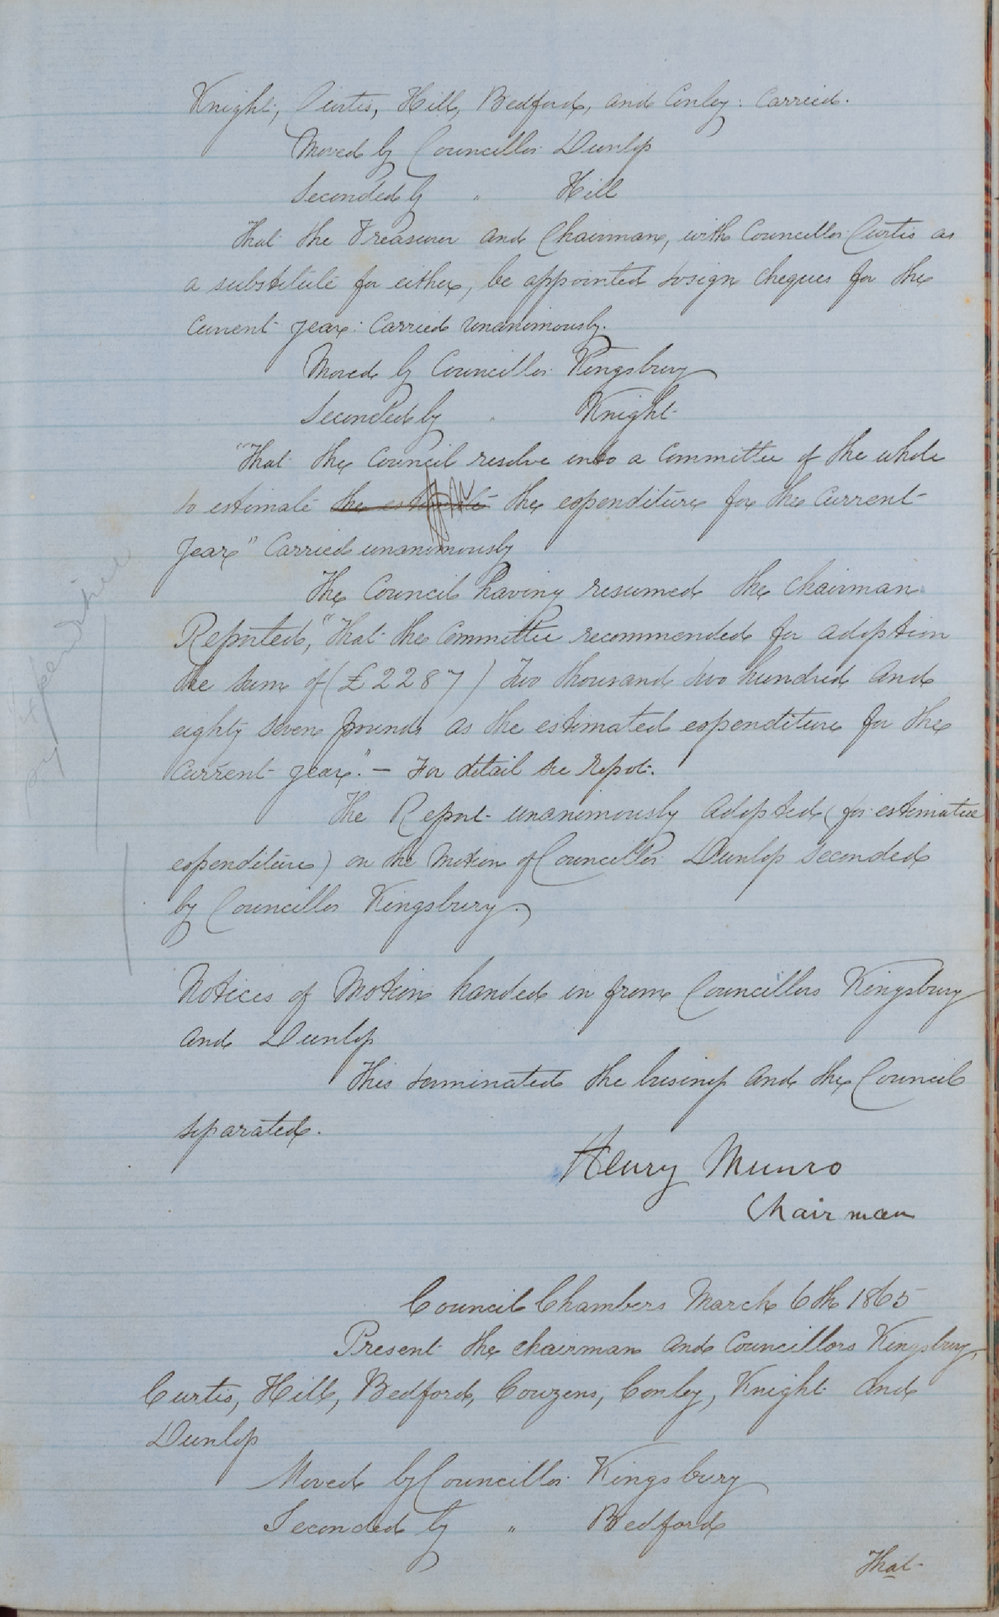 Knight, Curtis, Hill, Bedford, and Conley: Carried.
Moved by Councillor Dunlop
Seconded by " Hill
That the Treasurer and Chairman, with Councillor Curtis as
a substitute for either, be appointed to sign cheques for the
current year: Carried unanimously.
Moved by Councillor Kingsbury
Seconded by " Knight
"That the Council resolve into a Committee of the whole
to estimate the the expenditure for the Current
year" Carried unanimously
The Council having resumed the chairman
Reported, "That the Committee recommended for adoption
the sum of (£2287) Two thousand two hundred and
eighty seven pounds as the estimated expenditure for the
Current year". — For detail see repot.
The Report unanimously adopted (for estimative
expenditure) on the motion of Councillor Dunlop seconded
by Councillor Kingsbury.
Notices of Motion handed in from Councillors Kingsbury
and Dunlop
This terminated the business and the Council
separated.
Henry Munro
Chairman
Council Chambers March 6th 1865
Present the chairman and Councillors Kingsbury,
Curtis, Hill, Bedford, Couzens, Conley, Knight and
Dunlop
Moved by Councillor Kingsbury
Seconded by " Bedford
That
Expenditure